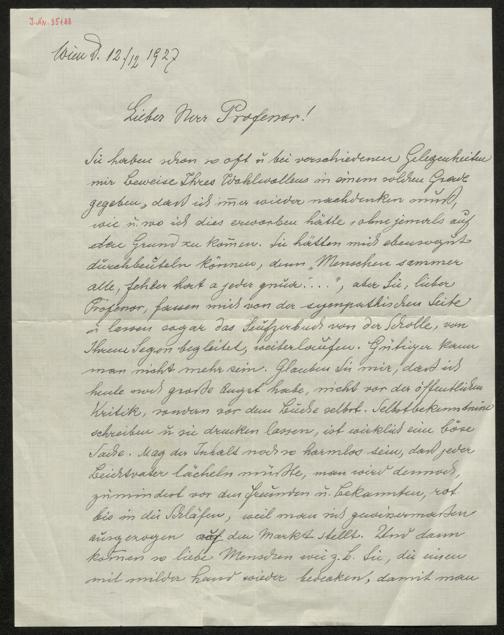 J. N. 95188
Wien d. 12./12 1927
Lieber Herr Professor!
Sie haben schon so oft u bei verschiedenen Gelegenheiten
mir Beweise Ihres Wohlwollens in einem solchen Grade
gegeben, daß ich immer wieder nachdenken muß,
wie u. wo ich dies erworben hätte, ohne jemals auf
den Grund zu kommen. Sie hätten mich ebensogut
durchbeuteln können, denn „Menschen sammer
alle, fehler hat a jeder gnua....", aber Sie, lieber
Professor, fassen mich von der sympathischen Seite
u lassen sogar das Seufzerbuch von der Scholle, von
Ihrem Segen begleitet, weiterlaufen. Gütiger kann
man nicht mehr sein. Glauben Sie mir, daß ich
heute noch große Angst habe, nicht vor der öffentlichen
Kritik, sondern vor dem Buche selbst. Selbstbekenntnisse
schreiben u sie drucken lassen, ist wirklich eine böse
Sache. Mag der Inhalt noch so harmlos sein, daß jeder
Beichtvater lächeln müßte, man wird dennoch,
zumindest vor den freunden u. Bekannten, rot
bis in die Schläfen, weil man sich gewissermaßen
ausgezogen auf den Markt stellt. Und dann
kommen so liebe Menschen wie z. b. Sie, die einen
mit milder Hand wieder bedecken, damit man